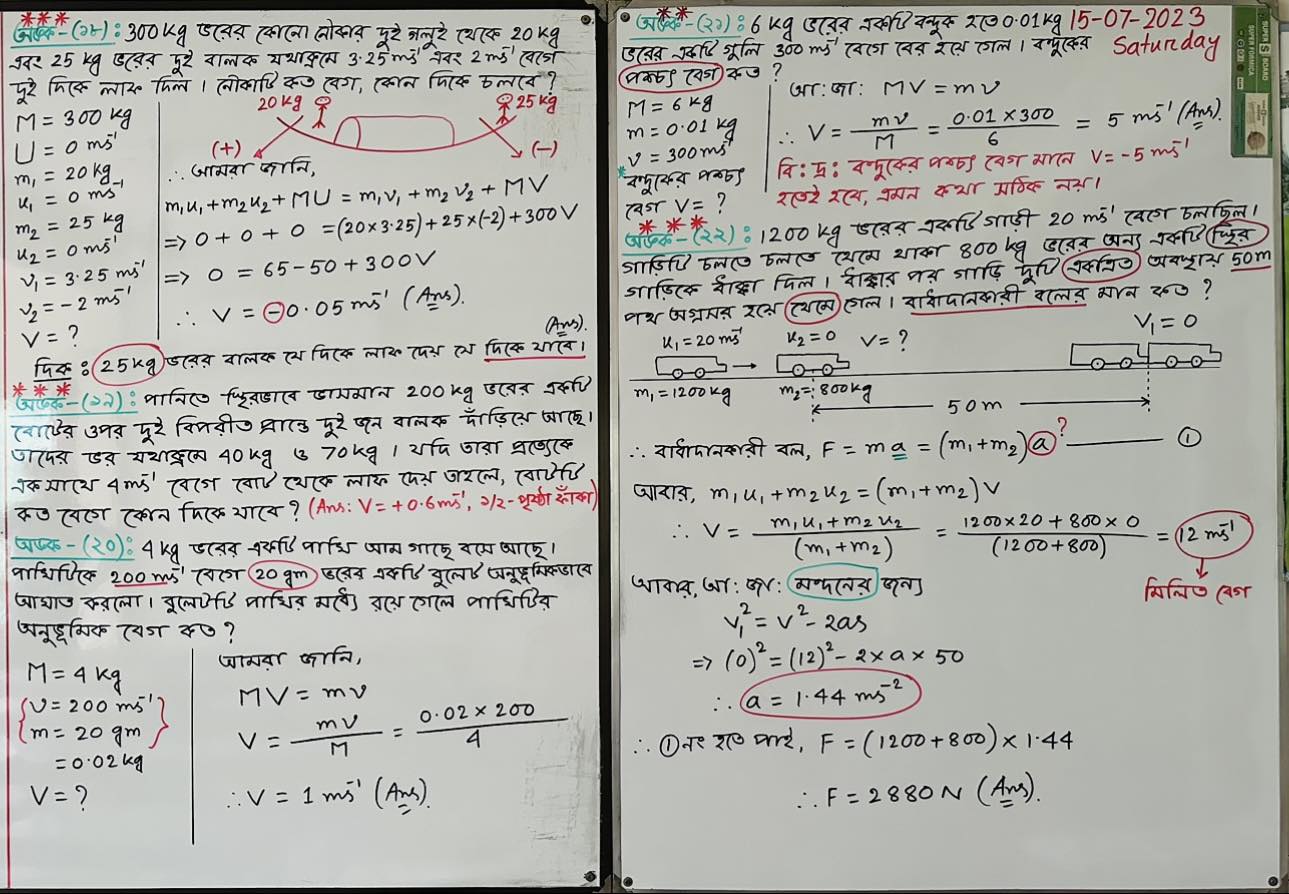 অংক-(১৮): 300 kg ভরের কোনো নৌকার দুই গলুই থেকে 20 kg
এবং 25 kg ভরের দুই বালক যথাক্রমে 3.25 ms⁻¹ এবং 2 ms⁻¹ বেগে
দুই দিকে লাফ দিল। নৌকাটি কত বেগে, কোন দিকে চলবে?
20 kg
25 kg
(+)
(-)
M = 300 kg
U = 0 ms⁻¹
m₁ = 20 kg
u₁ = 0 ms⁻¹
m₂ = 25 kg
u₂ = 0 ms⁻¹
v₁ = 3.25 ms⁻¹
v₂ = -2 ms⁻¹
V = ?
∴ আমরা জানি,
m₁u₁ + m₂u₂ + MU = m₁v₁ + m₂v₂ + MV
=> 0 + 0 + 0 = (20×3.25) + 25×(-2) + 300V
=> 0 = 65 - 50 + 300V
∴ V = -0.05 ms⁻¹ (Ans).
(Ans).
দিক: 25 kg ভরের বালক যে দিকে লাফ দেয় সে দিকে যাবে।
অংক-(১৯): পানিতে স্থিরভাবে ভাসমান 200 kg ভরের একটি
বোটের ওপর দুই বিপরীত প্রান্তে দুই জন বালক দাঁড়িয়ে আছে।
তাদের ভর যথাক্রমে 40 kg ও 70 kg। যদি তারা প্রত্যেকে
একসাথে 4 ms⁻¹ বেগে বোট থেকে লাফ দেয় তাহলে, বোটটি
কত বেগে কোন দিকে যাবে? (Ans: V = +0.6 ms⁻¹, ১/২-পৃষ্ঠা ফাঁকা)
অংক-(২০): 4 kg ভরের একটি পাখি আম গাছে বসে আছে।
পাখিটিকে 200 ms⁻¹ বেগে 20 gm ভরের একটি বুলেট অনুভূমিকভাবে
আঘাত করলো। বুলেটটি পাখির মধ্যে রয়ে গেলে পাখিটির
অনুভূমিক বেগ কত?
M = 4 kg
v = 200 ms⁻¹
m = 20 gm
= 0.02 kg
V = ?
আমরা জানি,
MV = mv
V = mv/M = 0.02 × 200/4
∴ V = 1 ms⁻¹ (Ans).
অংক-(২১): 6 kg ভরের একটি বন্দুক হতে 0.01 kg
15-07-2023
Saturday
ভরের একটি গুলি 300 ms⁻¹ বেগে বের হয়ে গেল। বন্দুকের
পশ্চাৎ বেগ কত?
M = 6 kg
m = 0.01 kg
v = 300 ms⁻¹
বন্দুকের পশ্চাৎ
বেগ V = ?
আ: জা: MV = mv
∴ V = mv/M = 0.01 × 300/6 = 5 ms⁻¹ (Ans).
বি: দ্র: বন্দুকের পশ্চাৎ বেগ মানে V = -5 ms⁻¹
হতেই হবে, এমন কথা সঠিক নয়।
অংক-(২২): 1200 kg ভরের একটি গাড়ী 20 ms⁻¹ বেগে চলছিল।
গাড়িটি চলতে চলতে থেমে থাকা 800 kg ভরের অন্য একটি স্থির
গাড়িকে ধাক্কা দিল। ধাক্কার পর গাড়ি দুটি একত্রিত অবস্থায় 50m
পথ অগ্রসর হয়ে থেমে গেল। বাধাদানকারী বলের মান কত?
u₁ = 20 ms⁻¹
u₂ = 0
V = ?
V₁ = 0
m₁ = 1200 kg
m₂ = 800 kg
50 m
∴ বাধাদানকারী বল, F = ma = (m₁+m₂) a ? ①
আবার, m₁u₁ + m₂u₂ = (m₁+m₂) V
∴ V = m₁u₁ + m₂u₂/(m₁+m₂) = 1200×20 + 800×0/(1200+800) = 12 ms⁻¹
মিলিত বেগ
আবার, আ: জা: মন্দনের জন্য
V₁² = V² - 2as
=> (0)² = (12)² - 2 × a × 50
∴ a = 1.44 ms⁻²
∴ ① নং হতে পাই, F = (1200 + 800) × 1.44
∴ F = 2880 N (Ans).